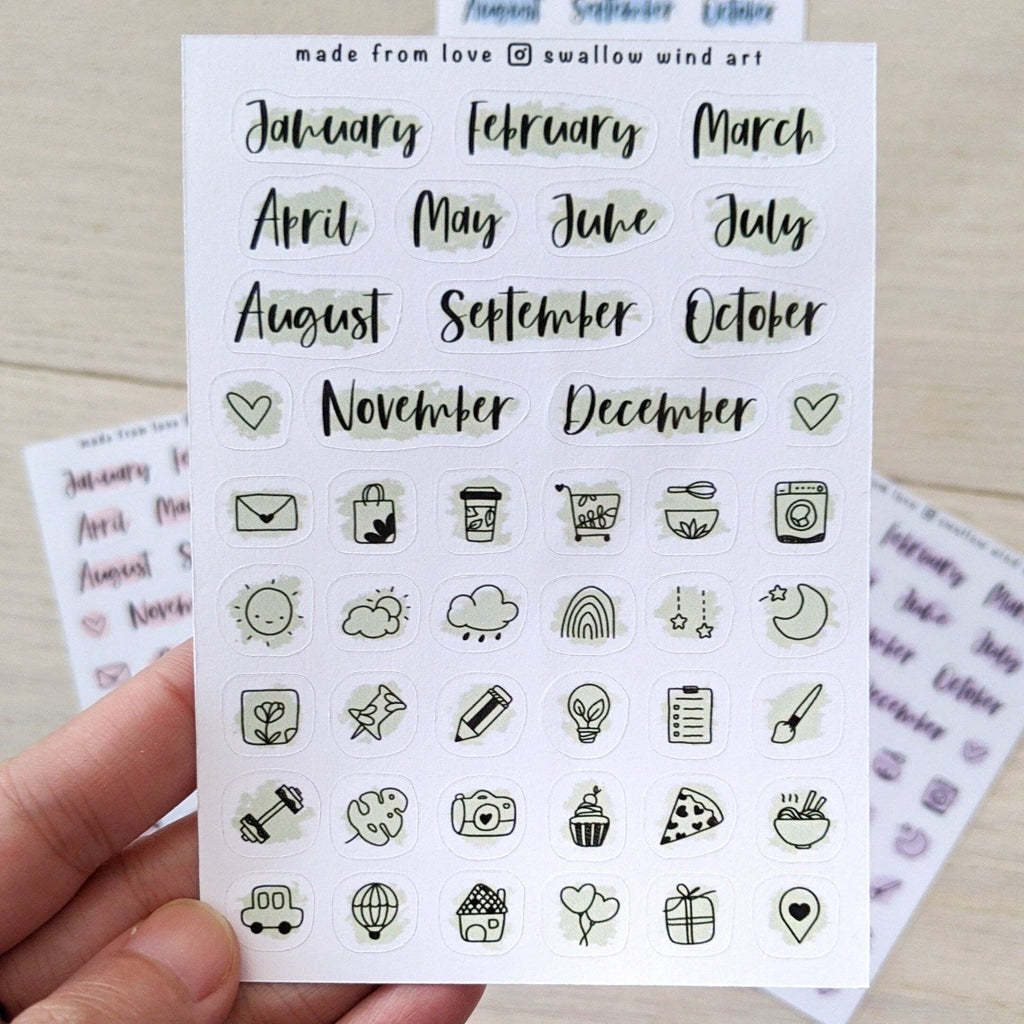 August September October
made from love swallow wind art
January February March
April May June July
August September October
November December
made from love
January
April
August
Novem
love swallow wind
February Mar
June July
October
December